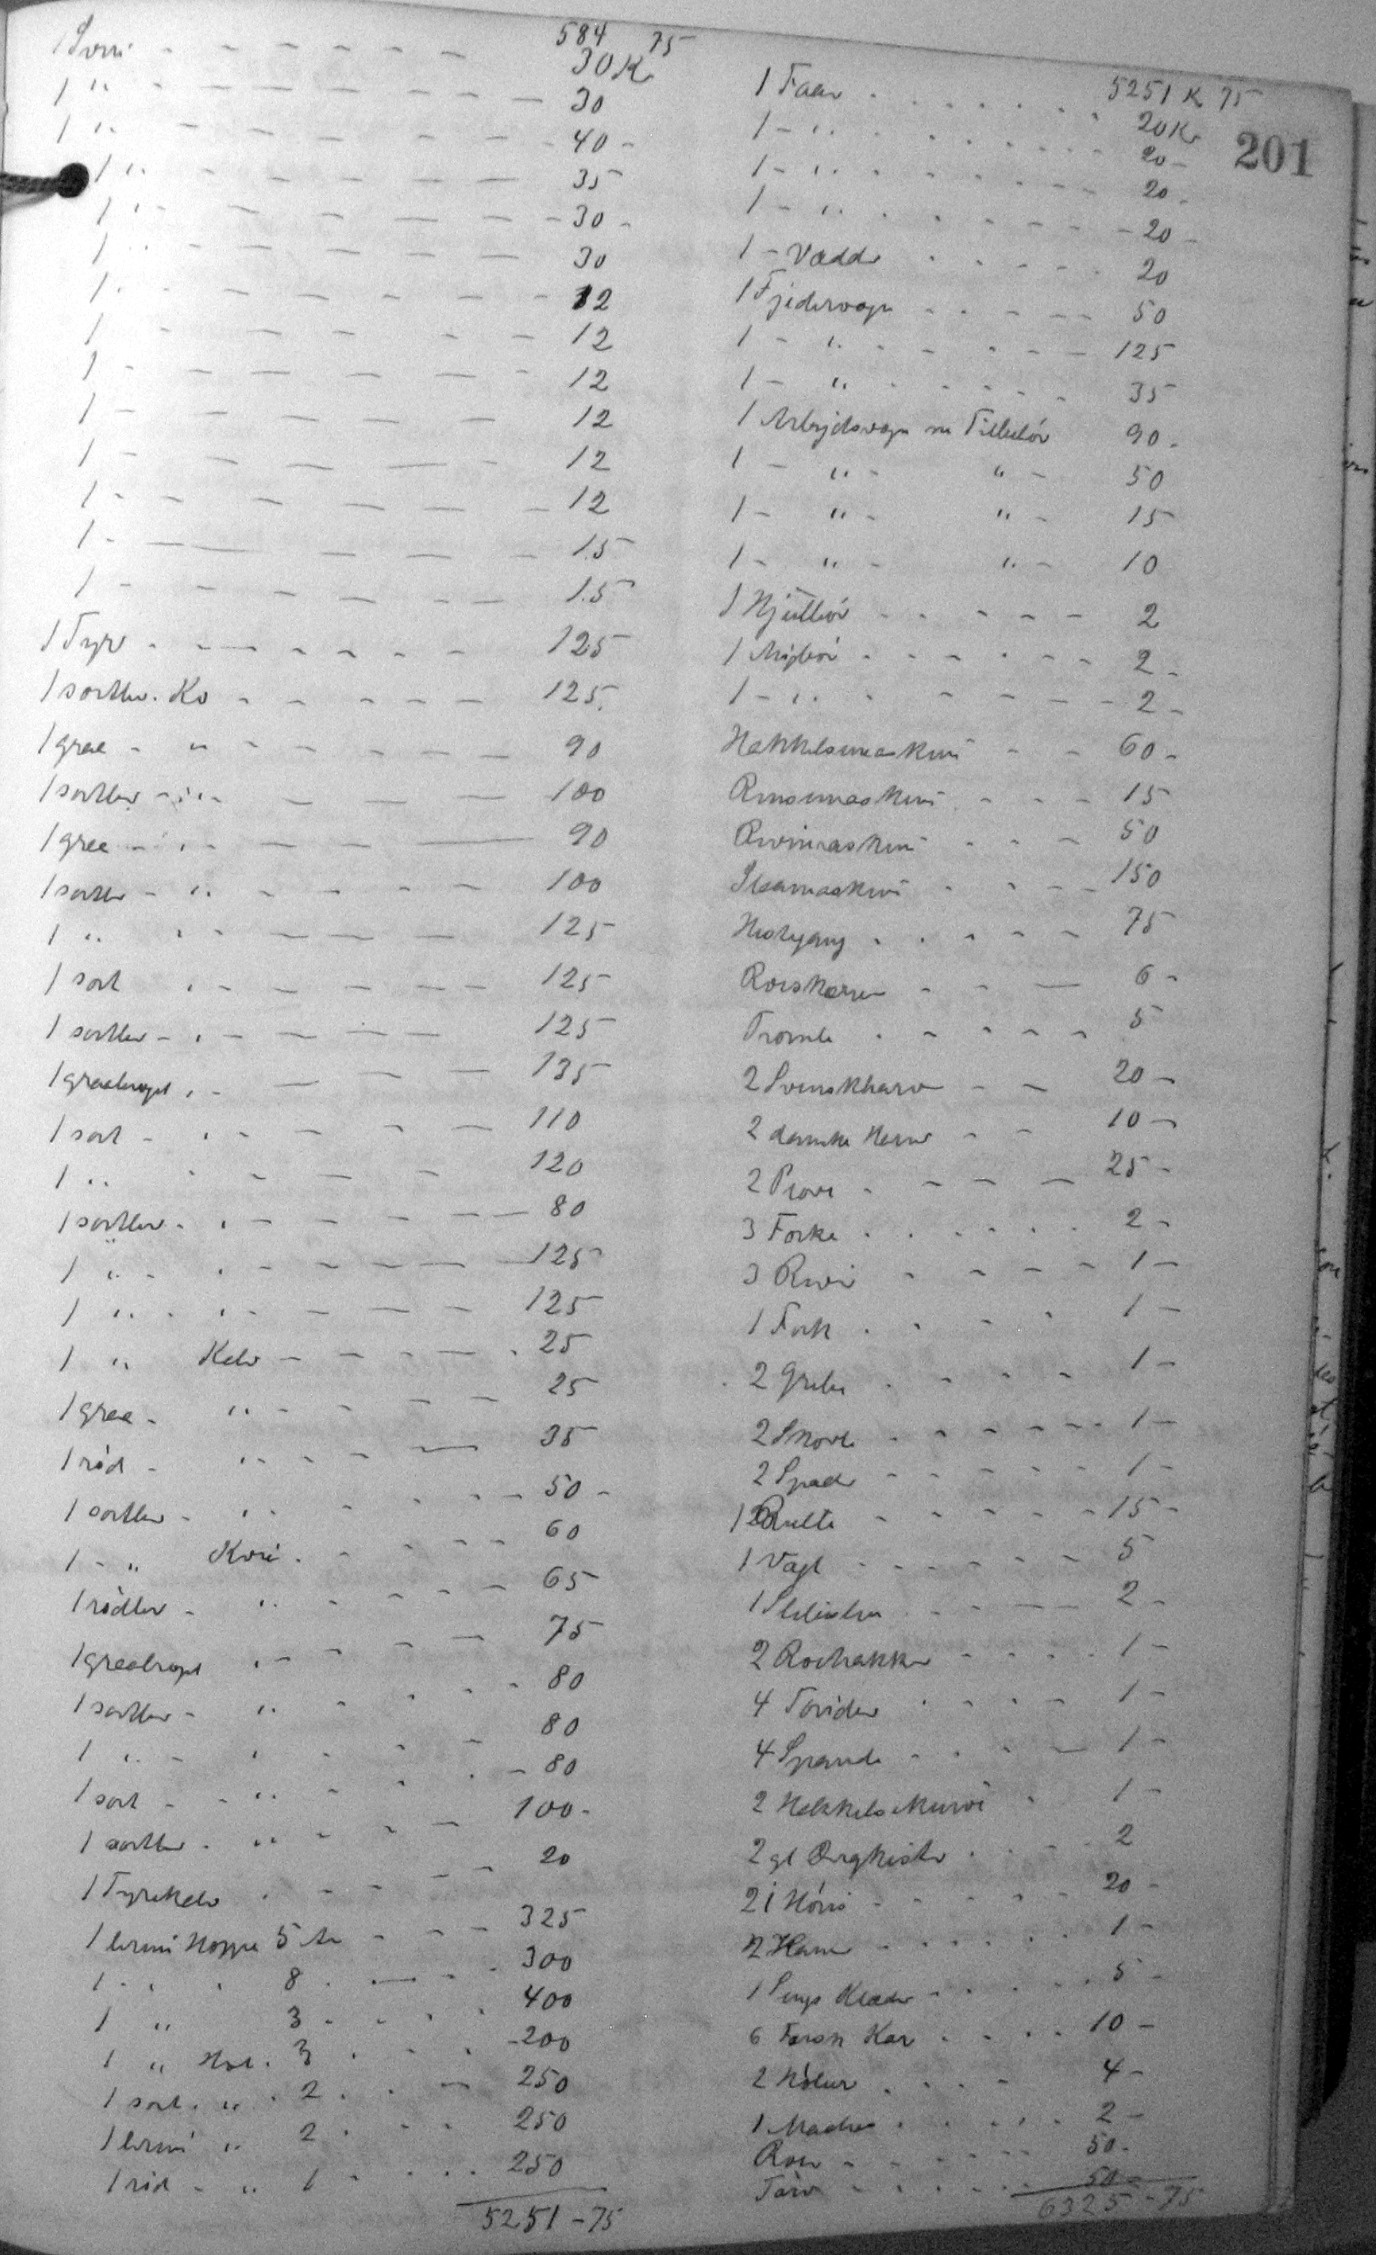 584 75
1 Svin 30 K.
1 " 30
1 " 40 -
1 " 35
1 " 30 -
1 " 30
1 " 12
1 - 12
1 - 12
1 - 12
1 - 12
1 - 12
1 - 15
1 - 15
1 Tyr 125
1 sortbr. Ko 125.
1 graa - " 90
1 sortbr - " 100
1 graa - " 90
1 sortbr - " 100
1 " " 125
1 sort " 125
1 sortbr - " 125
1 graabroget " 135
1 sort - " 110
1 " 120
1 sortbr - " 80
1 " " 125
1 " " 125
1 " Kalv 25
1 graa - " 25
1 rød - " 35
1 sortbr - " 50 -
1 - " Kvie 60
1 rødbr - " 65
1 graabroget " 75
1 sortbr - " 80
1 " - " 80
1 sort - " 80
1 sortbr - " 100 -
1 Tyrekalv 20
1 brun Hoppe 5 Aar 325
1 " " 8 300
1 " 3 400
1 " Hest. 3 200
1 sort " 2 250
1 brun " 2 250
1 rød - " 1 250
5251 - 75
201
5251 K 75
1 Faar 20 Kr
1 - " 20 -
1 - " 20 -
1 - " 20 -
1 - Vædder 20
1 Fjedervogn 50
1 - " 125
1 - " 35
1 Arbejdsvogn m Tilbehør 90 -
1 - " - " - 50
1 - " - " - 15
1 - " - " - 10
1 Hjulbør 2
1 Møgbør 2 -
1 - " 2 -
Hakkelsemaskine 60 -
Rensemaskine 15
Rivemaskine 50
Slaamaskine 150
Hestegang 75
Roeskærer 6 -
Tromle 5
2 Svenskharv 20 -
2 danske Harve 10 -
2 Plove 25 -
3 Forke 2 -
3 River 1 -
1 Fork 1 -
2 Grebe 1 -
2 Skovle 1 -
2 Spader 1 -
1 Rulle 15 -
1 Vægt 5
1 Slibesten 2 -
2 Roehakker 1 -
4 Tøirder 1 -
4 Spande 1 -
2 Hakkelseskurve 1 -
2 gl Dragkister 2
21 Høns 20 -
2 Haner 1 -
1 Sengeklæder 5 -
6 Farsk Kar 10 -
2 Hølæer 4 -
1 Madras 2 -
Roer 50 -
Tørv 50 -
6325 - 75